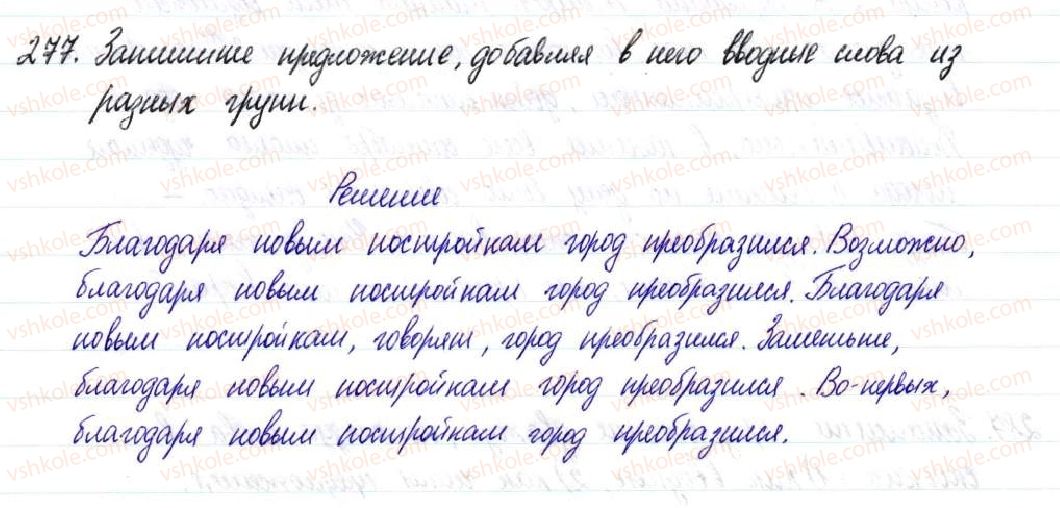 277. Запишите предложение, добавляя в него вводные слова из
разных групп.
Решение
Благодаря новым постройкам город преобразился. Возможно,
благодаря новым постройкам город преобразился. Благодаря
новым постройкам, говорят, город преобразился. Заметьте,
благодаря новым постройкам город преобразился. Во-первых,
благодаря новым постройкам город преобразился.
vshkole.com